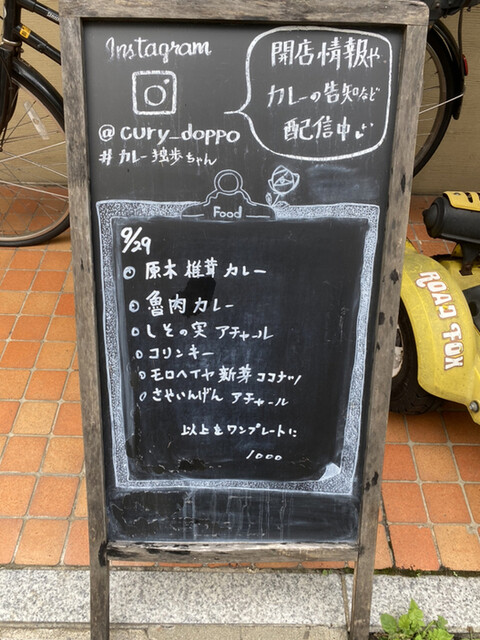 Instagram
開店情報や
カレーの告知など
配信中
@cury_doppo
#カレー独歩ちゃん
Food
9/29
原木椎茸カレー
魯肉カレー
しその実 アチャール
コリンキー
モロヘイヤ新芽ココナッツ
さやいんげん アチャール
以上をワンプレートに
1000
ROAD FOX